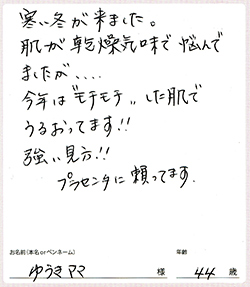 寒い冬が来ました。
肌が乾燥気味で悩んで
ましたが、、、、
今年は〝モチモチ〟した肌で
うるおってます!!
強い見方!!
プラセンタに頼ってます。
お名前(本名orペンネーム)
年齢
ゆうきママ 様 44 歳